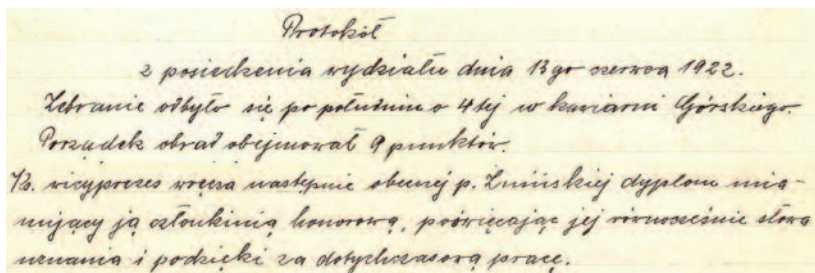 Protokół
z posiedzenia wydziału dnia 13 go czerwca 1922.
Zebranie odbyło się po południu o 4 tej w kawiarni Górskiego.
Porządek obrad obejmował 9 punktów.
Ks. wiceprezes wręcza następnie obecnej p. Żmińskiej dyplom mia-
nujący ją członkinią honorową, poświęcając jej równocześnie słowa
uznania i podzięki za dotychczasową pracę.